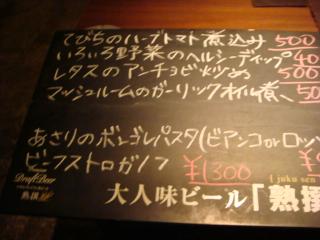 てびちのハーブトマト煮込み 500
いろいろ野菜のヘルシーディップ 40
レタスのアンチョビ炒め 500
マッシュルームのガーリックオイル煮、50
あさりのボンゴレパスタ(ビアンコorロッソ
ビーフストロガノフ ¥1300
Draft Beer
熟撰
( juku sen
大人味ビール「熟撰